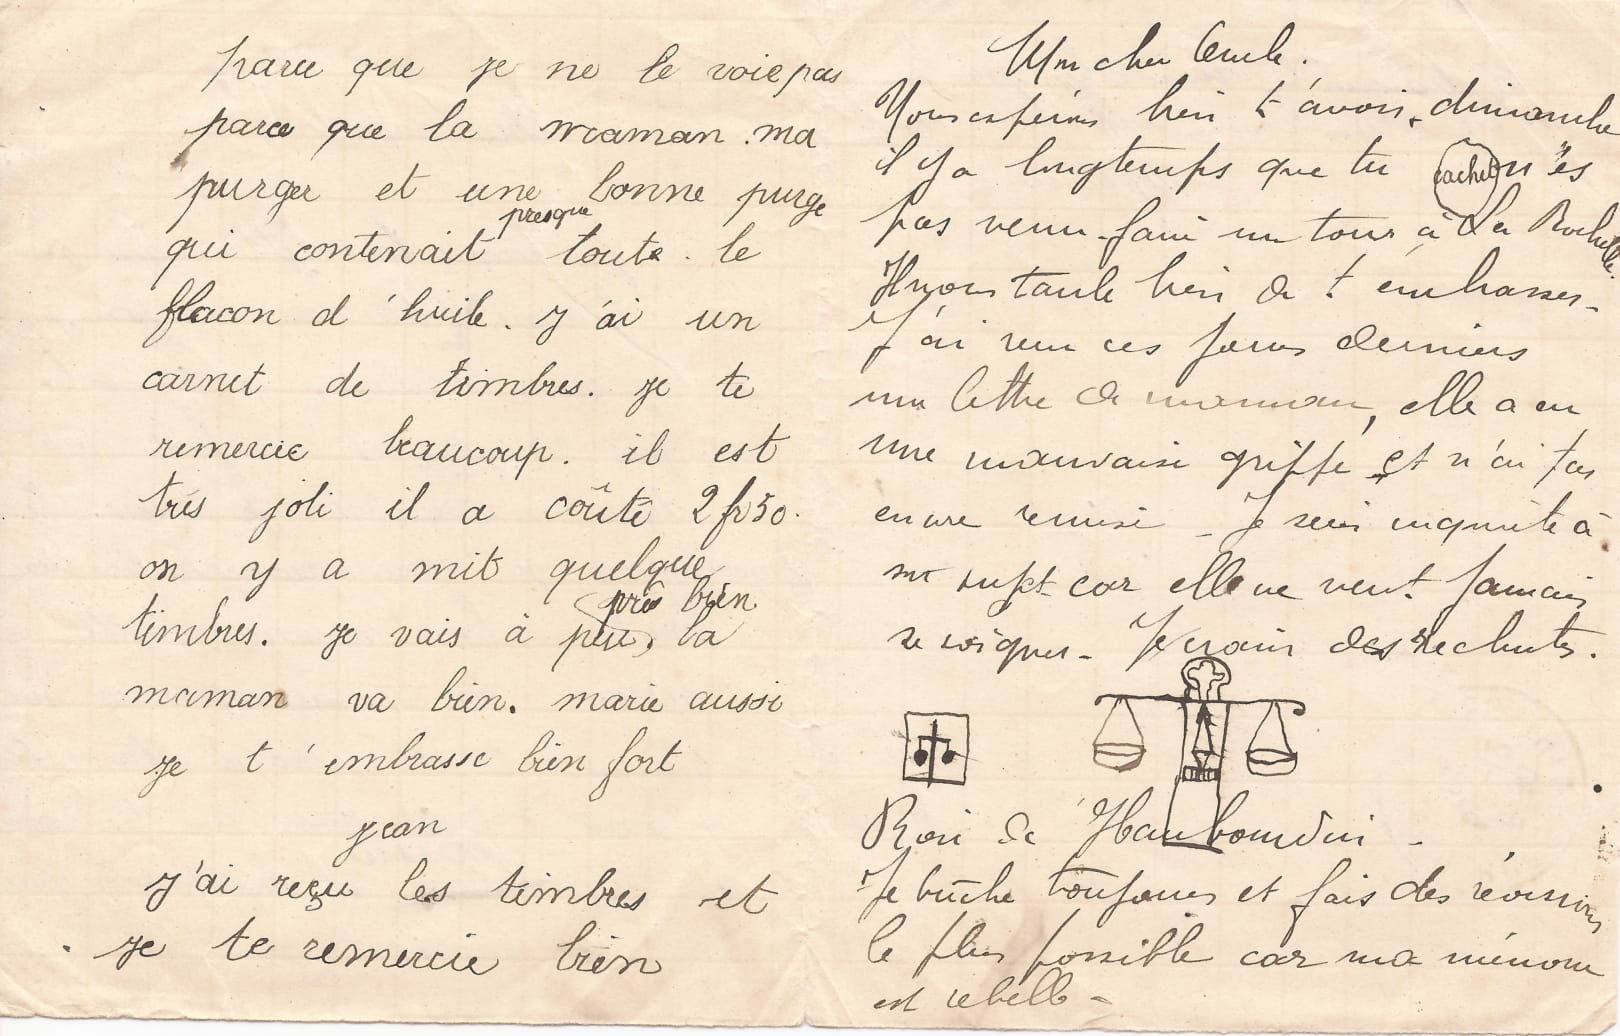 parce que je ne le voie pas
parce que la maman ma
purger et une bonne purge
presque
qui contenait toute le
flacon d'huile. j'ai un
carnet de timbres. je te
remercie beaucoup. il est
très joli il a coûté 2fr50.
on y a mit quelque
près bien
timbres. je vais à peu, la
maman va bien. marie aussi
je t'embrasse bien fort
jean
j'ai reçu les timbres et
je te remercie bien
Mon cher Oncle.
Nous espérions bien t'avoir dimanche
il y a longtemps que tu cachet n'es
pas venu faire un tour à La Rochelle.
Il nous tarde bien de t'embrasser.
J'ai reçu ces jours derniers
une lettre de maman, elle a eu
une mauvaise grippe et n'ai pas
encore remise - Je suis inquiète à
son sujet car elle ne veut jamais
se soigner - Je crains des rechutes.
de Haubourdin -
Je bûche toujours et fais des révisions
le plus possible car ma mémoire
est rebelle -